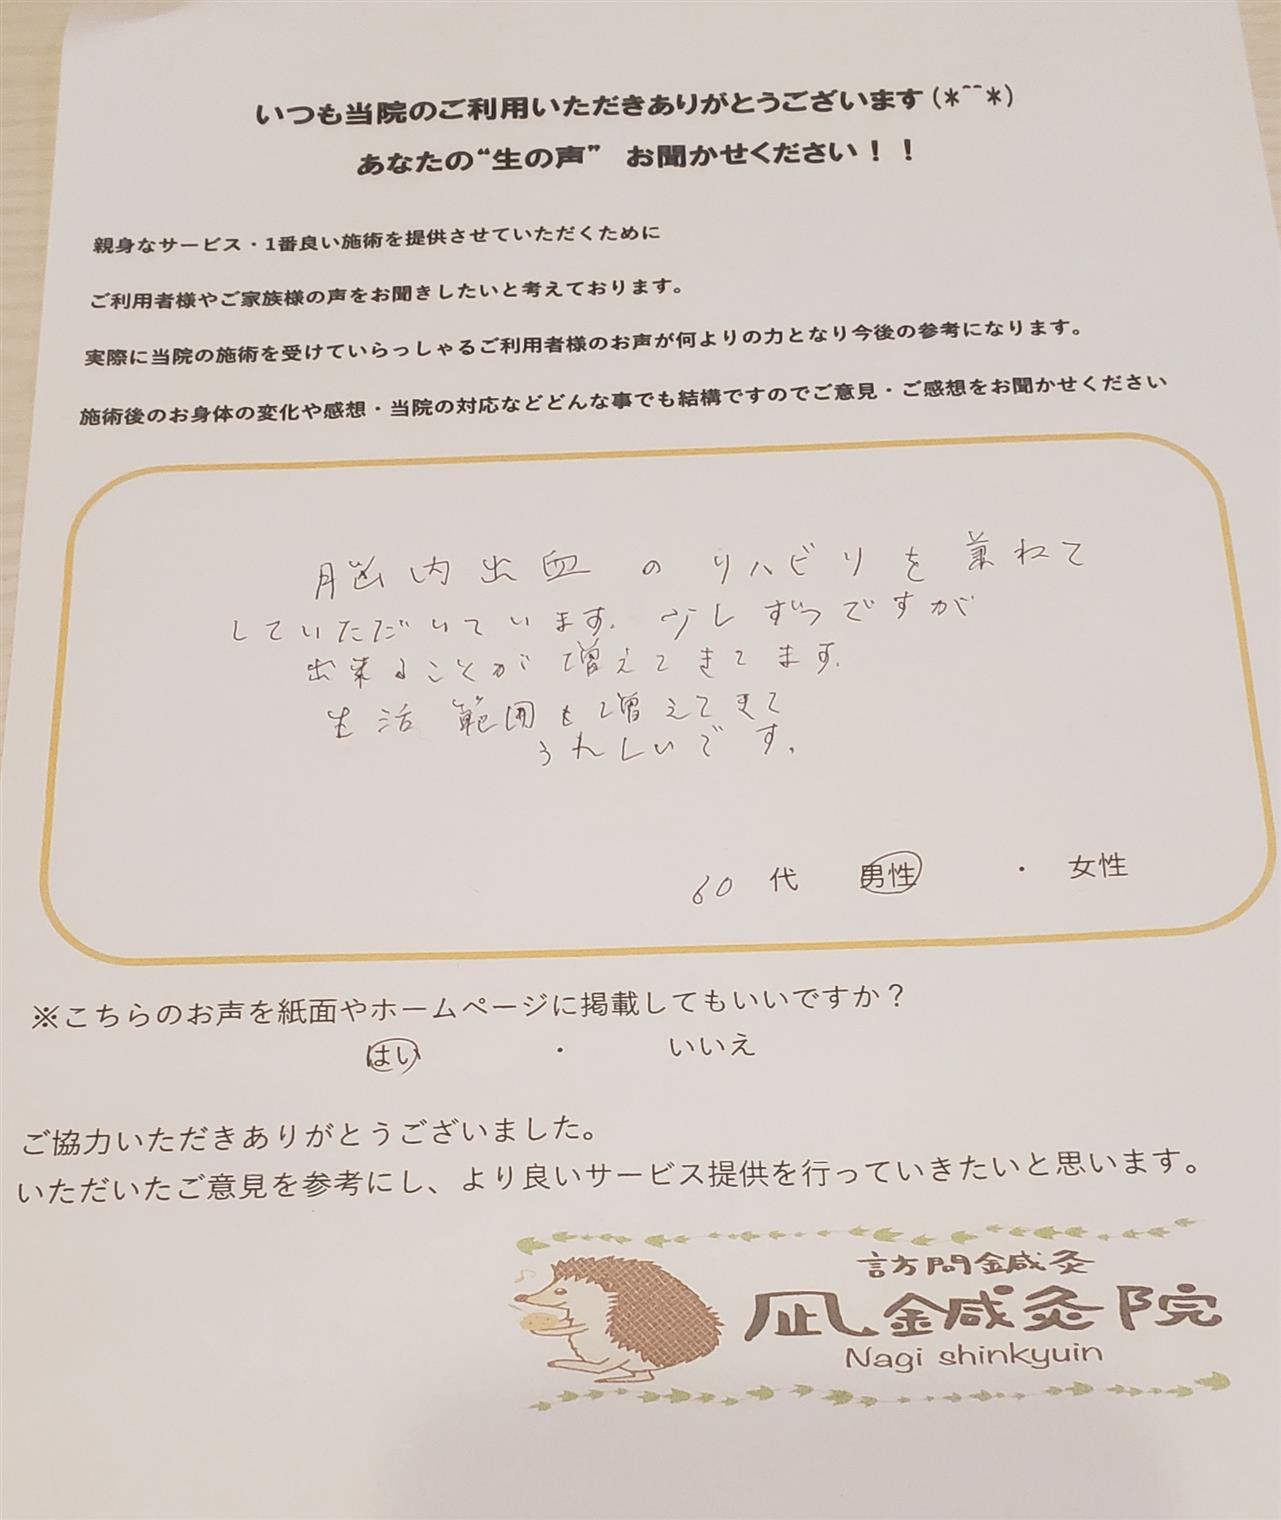 いつも当院のご利用いただきありがとうございます(*^^*)
あなたの“生の声” お聞かせください！！
親身なサービス・1番良い施術を提供させていただくために
ご利用者様やご家族様の声をお聞きしたいと考えております。
実際に当院の施術を受けていらっしゃるご利用者様のお声が何よりの力となり今後の参考になります。
施術後のお身体の変化や感想・当院の対応などどんな事でも結構ですのでご意見・ご感想をお聞かせください
脳内出血のリハビリを兼ねて
していただいています。少しずつですが
出来ることが増えてきてます。
生活範囲も増えてきて
うれしいです。
60代 男性 ・ 女性
※こちらのお声を紙面やホームページに掲載してもいいですか？
はい ・ いいえ
ご協力いただきありがとうございました。
いただいたご意見を参考にし、より良いサービス提供を行っていきたいと思います。
訪問鍼灸
凪鍼灸院
Nagi shinkyuin